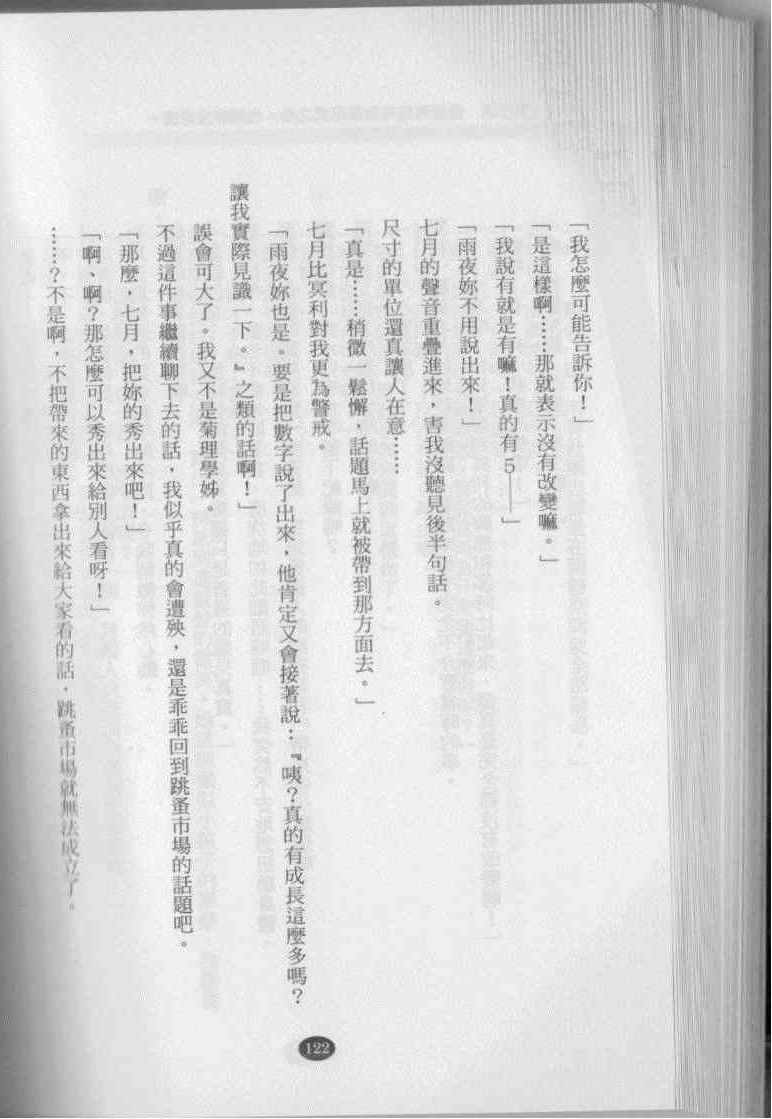 「我怎麼可能告訴你！」
「是這樣啊……那就表示沒有改變嘛。」
「我說有就是有嘛！真的有5——」
「雨夜妳不用說出來！」
七月的聲音重疊進來，害我沒聽見後半句話。
尺寸的單位還真讓人在意……
「真是……稍微一鬆懈，話題馬上就被帶到那方面去。」
七月比冥利對我更為警戒。
「雨夜妳也是。要是把數字說了出來，他肯定又會接著說：『咦？真的有成長這麼多嗎？
讓我實際見識一下。』之類的話啊！」
誤會可大了。我又不是菊理學姊。
不過這件事繼續聊下去的話，我似乎真的會遭殃，還是乖乖回到跳蚤市場的話題吧。
「那麼，七月，把妳的秀出來吧！」
「啊、啊？那怎麼可以秀出來給別人看呀！」
……？不是啊，不把帶來的東西拿出來給大家看的話，跳蚤市場就無法成立了。
122